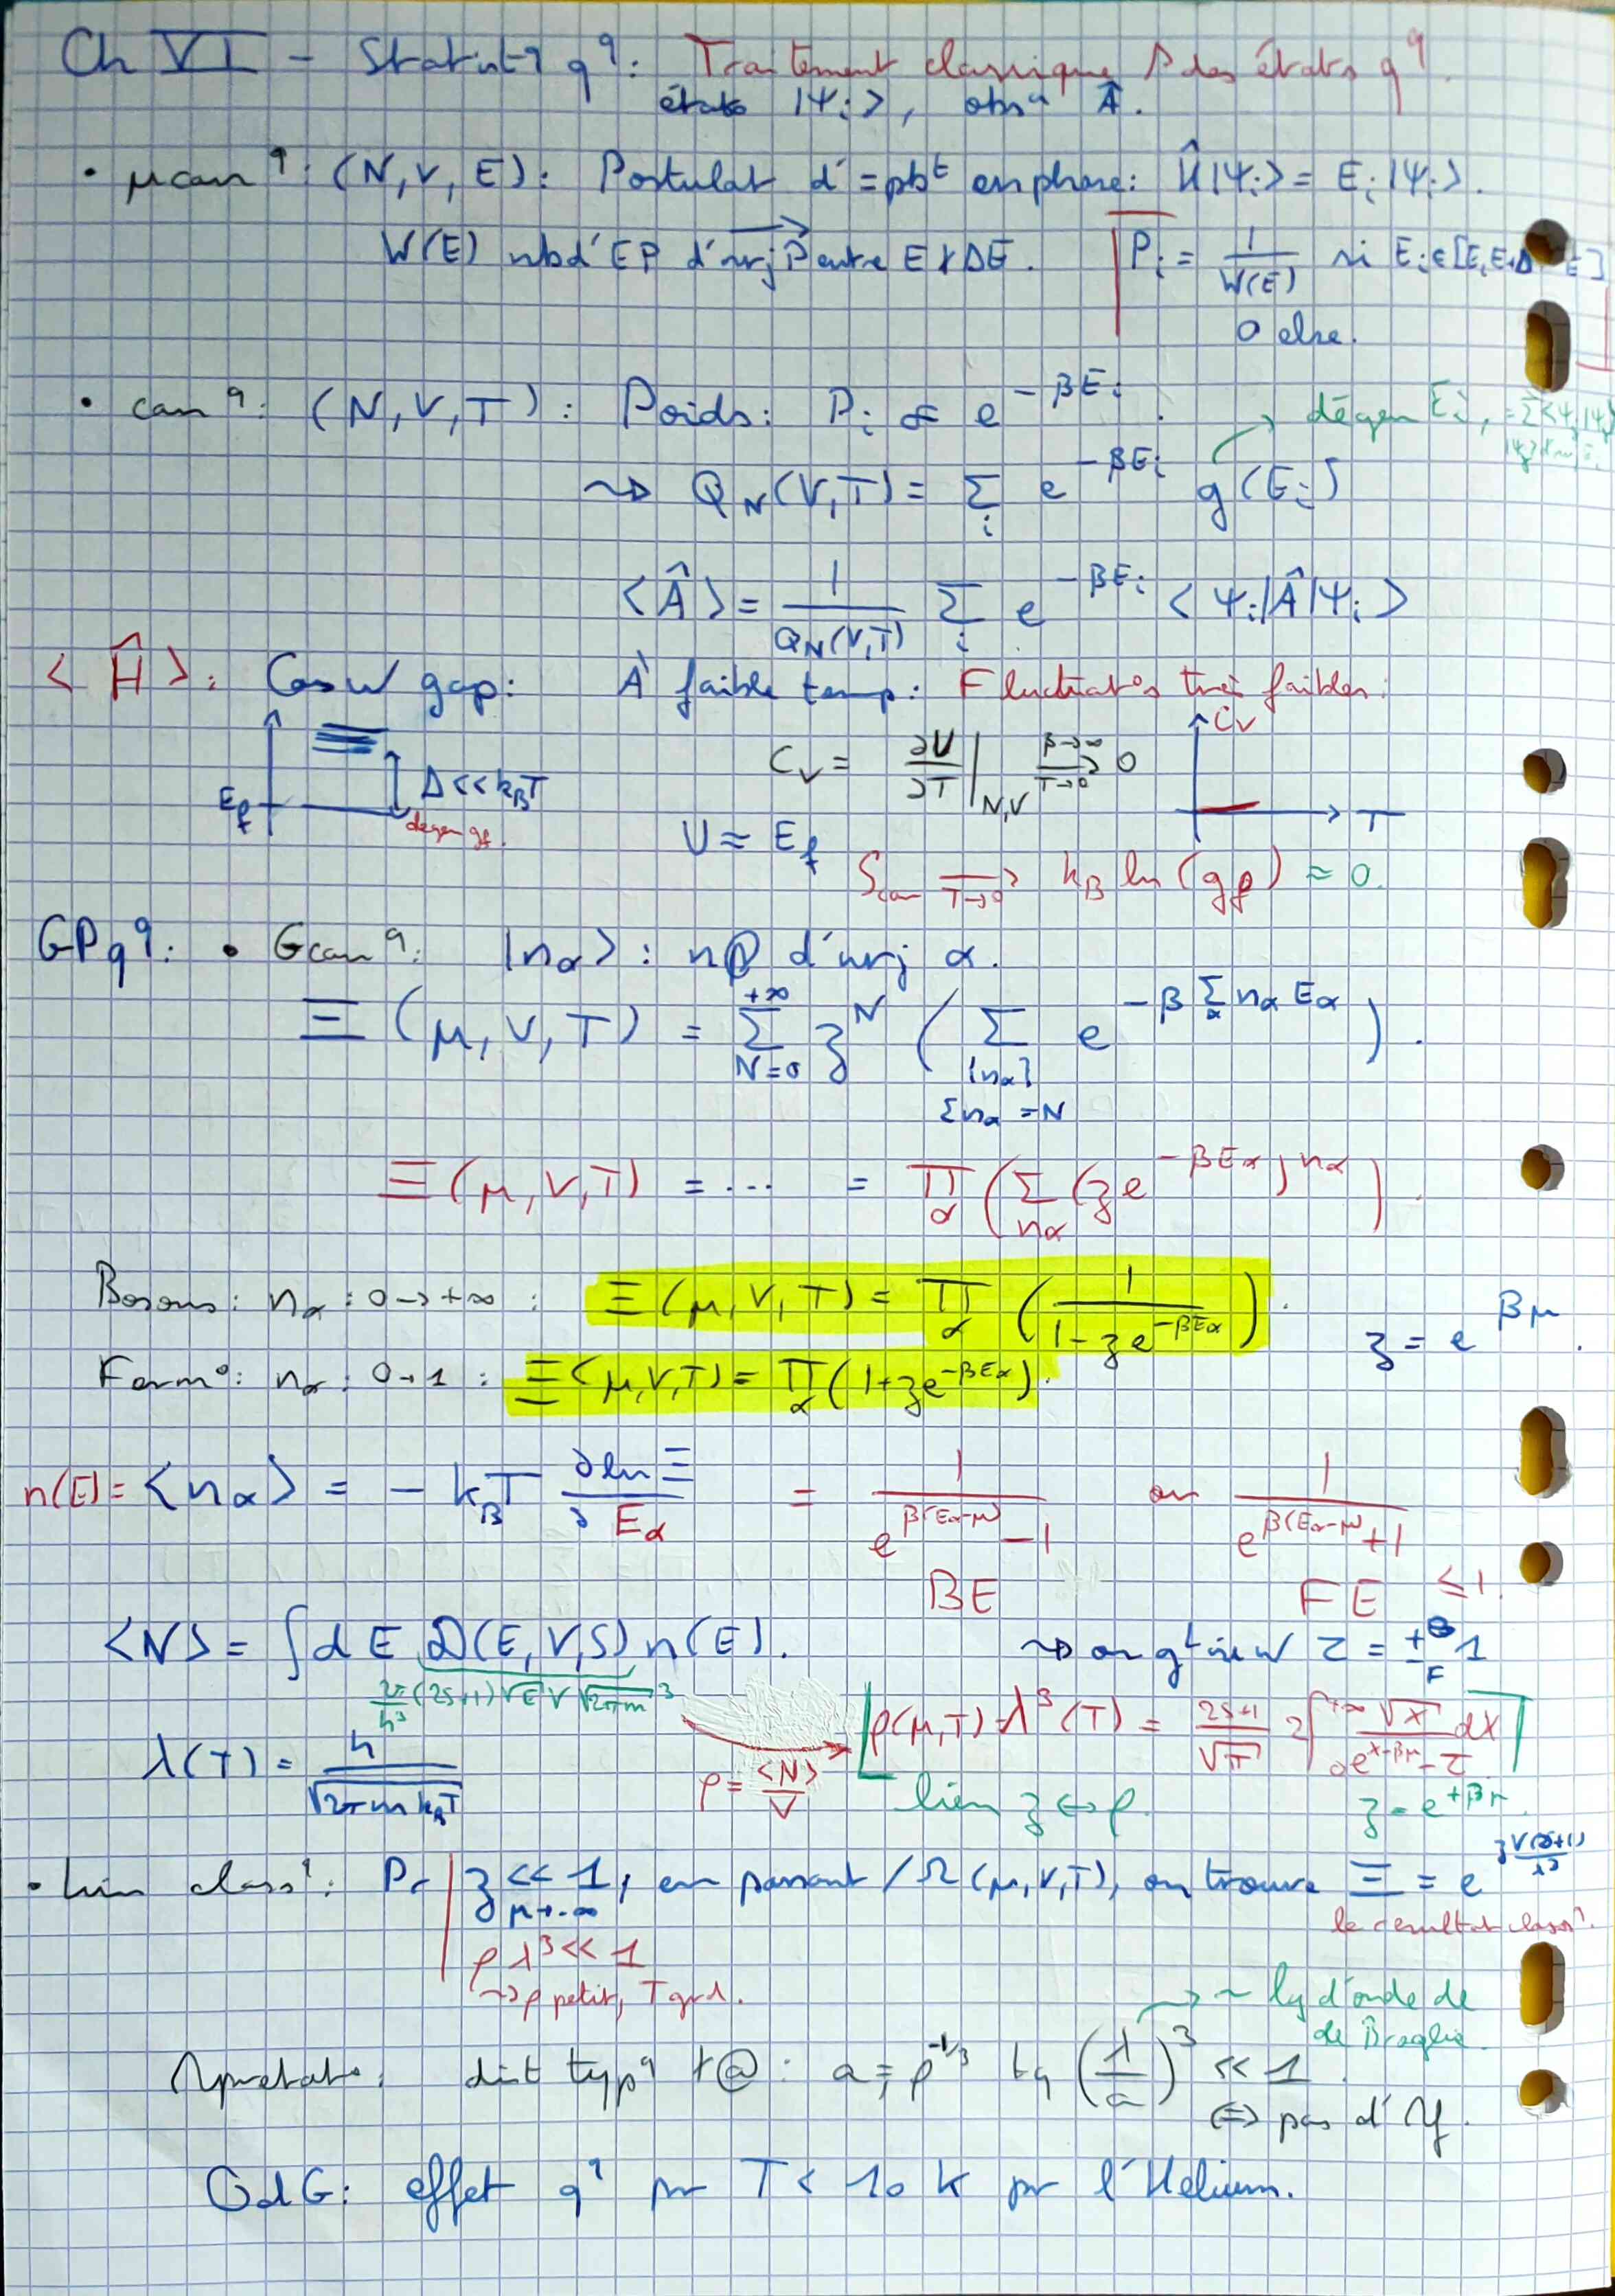 Ch VI - Statist^q q^q: Traitement classique des états q^q.
états |Ψi>, obs^n Â.
• μcan^q: (N,V,E): Postulat d'=pb^t en phase: Ĥ|Ψi> = Ei|Ψi>.
W(E) nb d'EP d'nrj entre E & ΔE. Pi = 1/W(E) si Ei∈[E,E+ΔE]
0 else.
• can^q: (N,V,T): Poids: Pi ∝ e^{-βEi}. → dégen Ei,
⇝ Q_N(V,T) = Σ_i e^{-βEi} g(Ei)
<Â> = 1/Q_N(V,T) Σ_i e^{-βEi} <Ψi|Â|Ψi>
<Ĥ>: Cas w gap: À faible temp: Fluctuat°s très faibles:
Δ<<k_BT
E_f
degen g_f.
C_V = ∂U/∂T|_{N,V} →^{β→∞}_{T→0} 0
C_V
T
U ≈ E_f
S_can →_{T→0} k_B ln(g_f) ≈ 0.
GP q^q: • Gcan^q: |nα>: n d'nrj α.
Ξ(μ,V,T) = Σ_{N=0}^{+∞} z^N (Σ_{{nα} Σnα=N} e^{-β Σ_α nα Eα}).
Ξ(μ,V,T) = ... = Π_α (Σ_{nα} (z e^{-βEα})^{nα}).
Bosons: nα: 0→+∞: Ξ(μ,V,T) = Π_α (1/(1-ze^{-βEα})). z = e^{βμ}.
Ferm°: nα: 0→1: Ξ(μ,V,T) = Π_α (1+ze^{-βEα}).
n(E) = <nα> = -k_BT ∂lnΞ/∂Eα = 1/(e^{β(Eα-μ)}-1) ou 1/(e^{β(Eα-μ)}+1)
BE FE ≤1.
<N> = ∫dE D(E,V,S) n(E). ⇝ on g^t w τ = ±1
2π/h³ (2S+1)√E V √2πm³
λ(T) = h/√(2πmk_BT)
ρ = <N>/V
ρ(μ,T) λ³(T) = (2S+1)/√π 2∫_0^{+∞} √x dx/(e^{x-βμ}-τ)
lien z↔ρ z = e^{+βμ}.
• Lim class^q: Pr z<<1, en passant /Ω(μ,V,T), on trouve Ξ = e^{zV(2S+1)/λ³}
μ→-∞
le résultat class^q.
ρλ³<<1
⇝ρ petit, T grd.
→ ~ lg d'onde de
de Broglie.
dist typ^q: a = ρ^{-1/3} tq (λ/a)³ << 1
⇔ pas d'
OdG: effet q^q pr T < 10 K pr l'Helium.